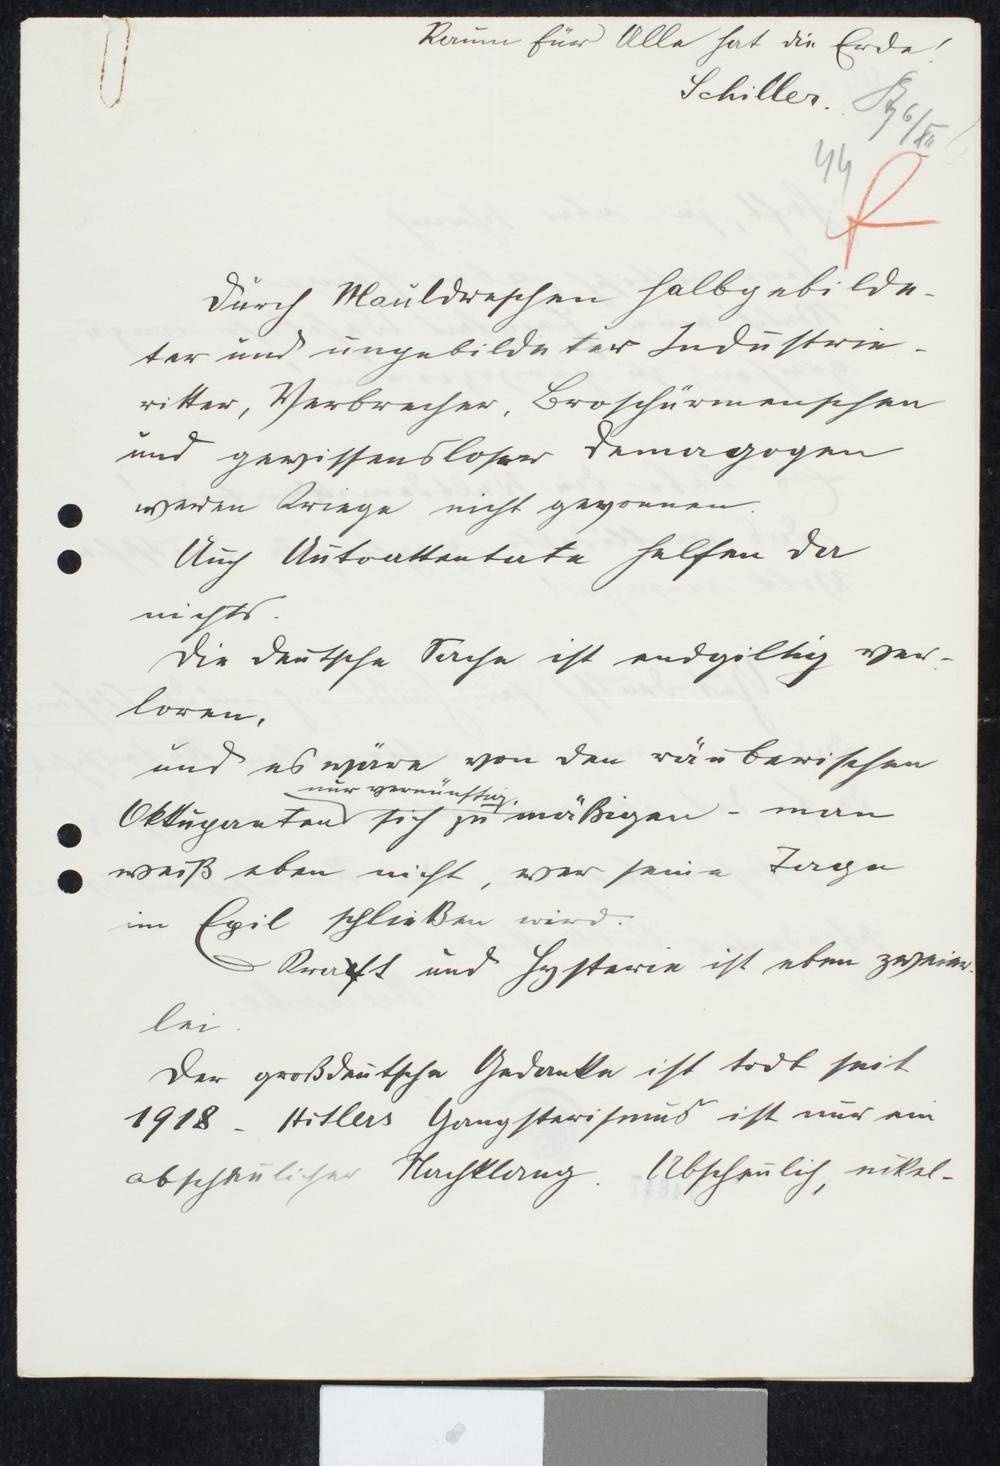 Raum für Alle hat die Erde!
Schiller.
6/XII
44
Durch Mauldreschen halbgebilde-
ter und ungebildeter Industrie-
ritter, Verbrecher, Broschürmenschen
und gewissensloser Demagogen
werden Kriege nicht gewonnen.
Auch Autoattentate helfen da
nichts.
Die deutsche Sache ist endgiltig ver-
loren,
und es wäre von den räuberischen
nur vernünftig,
Okkupanten sich zu mäßigen - man
weiß eben nicht, wer seine Tage
im Exil schließen wird.
Kraft und Hysterie ist eben zweier-
lei.
Der großdeutsche Gedanke ist todt seit
1918 - Hitlers Gangsterismus ist nur ein
abscheulicher Nachklang. Abscheulich, ekel-